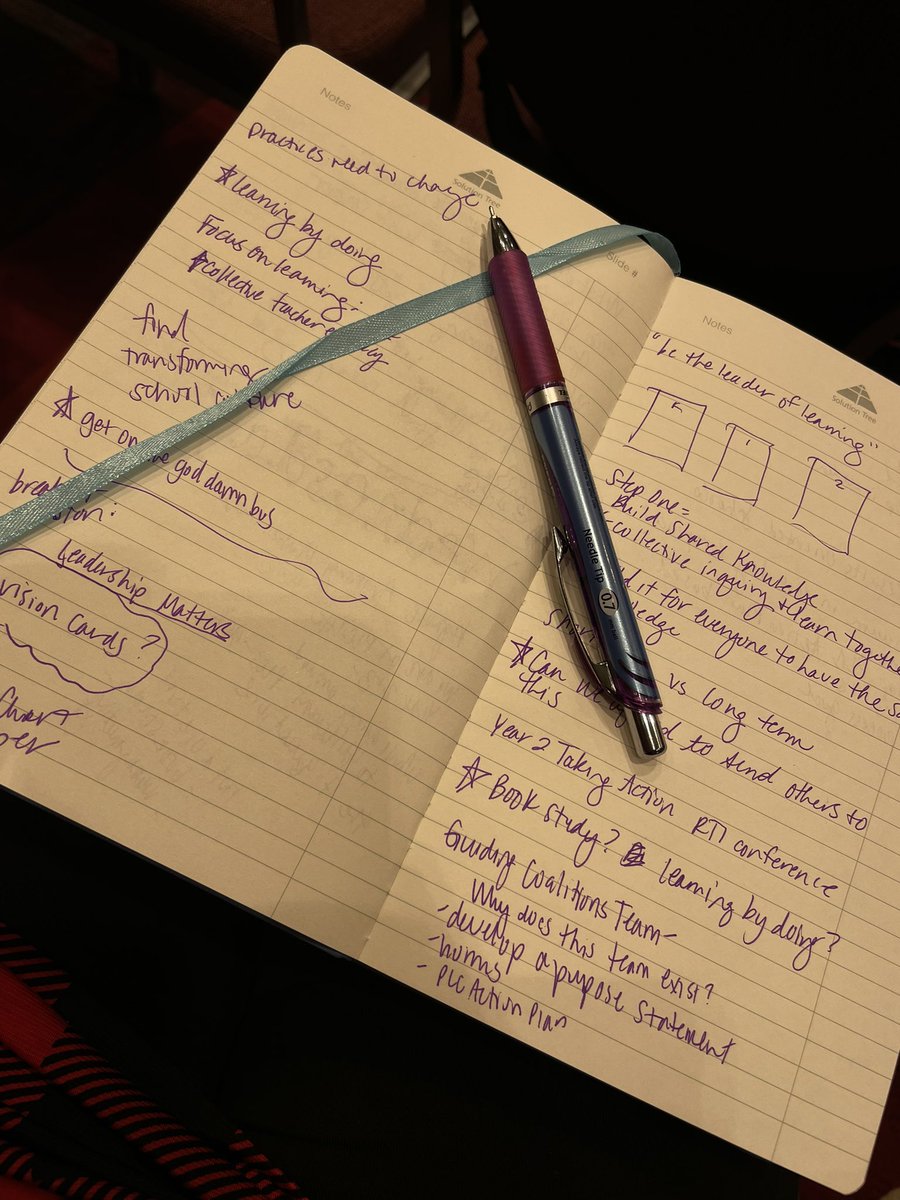 Notes
Solution Tree
Slide #
practices need to change
☆ learning by doing
Focus on learning:
collective teacher
find
transforming
school
☆ get on god damn bus
Leadership Matters
vision cards?
Chart
Notes
Solution Tree
"be the leader of learning"
1
2
Step one =
Build Shared Knowledge
- collective inquiry + learn together
it for everyone to have the
vs long term
☆ Can we to send others to
this
Year 2 Taking Action RTI conference
☆ Book study? learning by doing?
Guiding Coalitions Team -
Why does this team exist?
- develop a purpose statement
- norms
- PLC Action Plan
Needle Tip 0.7